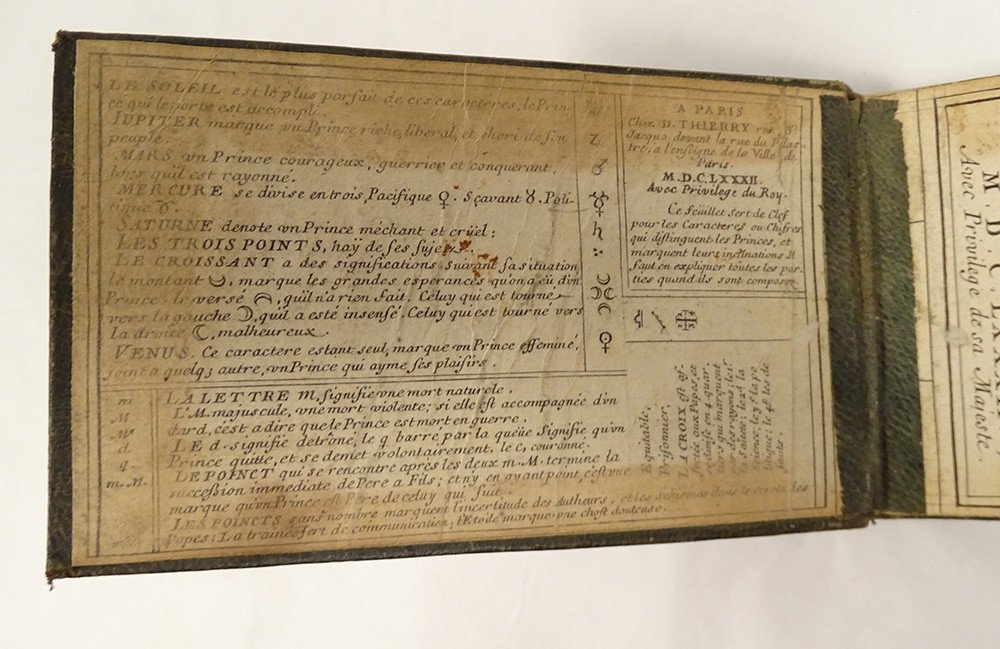 LE SOLEIL est le plus parfait de ces caracteres, le Prin-
ce qui le porte est accompli.
JUPITER marque vn Prince riche, liberal, et cheri de son
peuple.
MARS vn Prince courageux, guerrier et conquerant
lors quil est rayonné.
MERCURE se divise en trois Pacifique ♀. Sçavant ☿. Poli-
tique ♉.
SATURNE denote vn Prince méchant et crüel:
LES TROIS POINTS, haÿ de ses sujets.
LE CROISSANT a des significations suivant sa situation
le montant, marque les grandes esperances qu'on a eü d'vn
Prince. le versé, qu'il n'a rien fait. Celuy qui est tourné
vers la gauche ☽, qu'il a esté insensé. Celuy qui est tourné vers
la droite ☾, malheureux.
VENUS. Ce caractere estant seul, marque vn Prince effeminé,
joint a quelq3 autre, vn Prince qui ayme ses plaisirs.
♃
♂
♄
♀
m
M
d
q
m.M.
LA LETTRE m, signifie vne mort naturele.
L'M. majuscule, vne mort violente; si elle est accompagnée d'vn
dard, c'est a dire que le Prince est mort en guerre.
LE d. signifie detrône, le q barré par la queüe signifie qu'vn
Prince quitte, et se demet volontairement, le c, couronné.
LE POINCT qui se rencontre apres les deux m. M. termine la
succession immediate de Pere a Fils; et n'y en ayant point, c'est vne
marque qu'vn Prince est Pere de celuy qui suit.
LES POINCTS sans nombre marquent l'incertitude des Autheurs, et les schismes dans le cercle des
Papes; La trainée sert de communication; l'Etoile marque vne chose douteuse.
A PARIS
Chez D. THIERRY rue St
Jacque devant la rue du Plas-
tre, a l'enseigne de la Ville de
Paris.
M.DC.LXXXII.
Avec Privilege du Roy.
Ce feüillet sert de Clef
pour les Caracteres ou Chifres
qui distinguent les Princes, et
marquent leurs inclinations Il
faut en expliquer toutes les par-
ties quand ils sont composez
Equitable,
Prisonnier,
LA CROIX est af-
fectée aux Papes, et
divisée en 4 quar-
tiers qui marquent
M. D C. LXX
Avec Privilege de sa Majesté